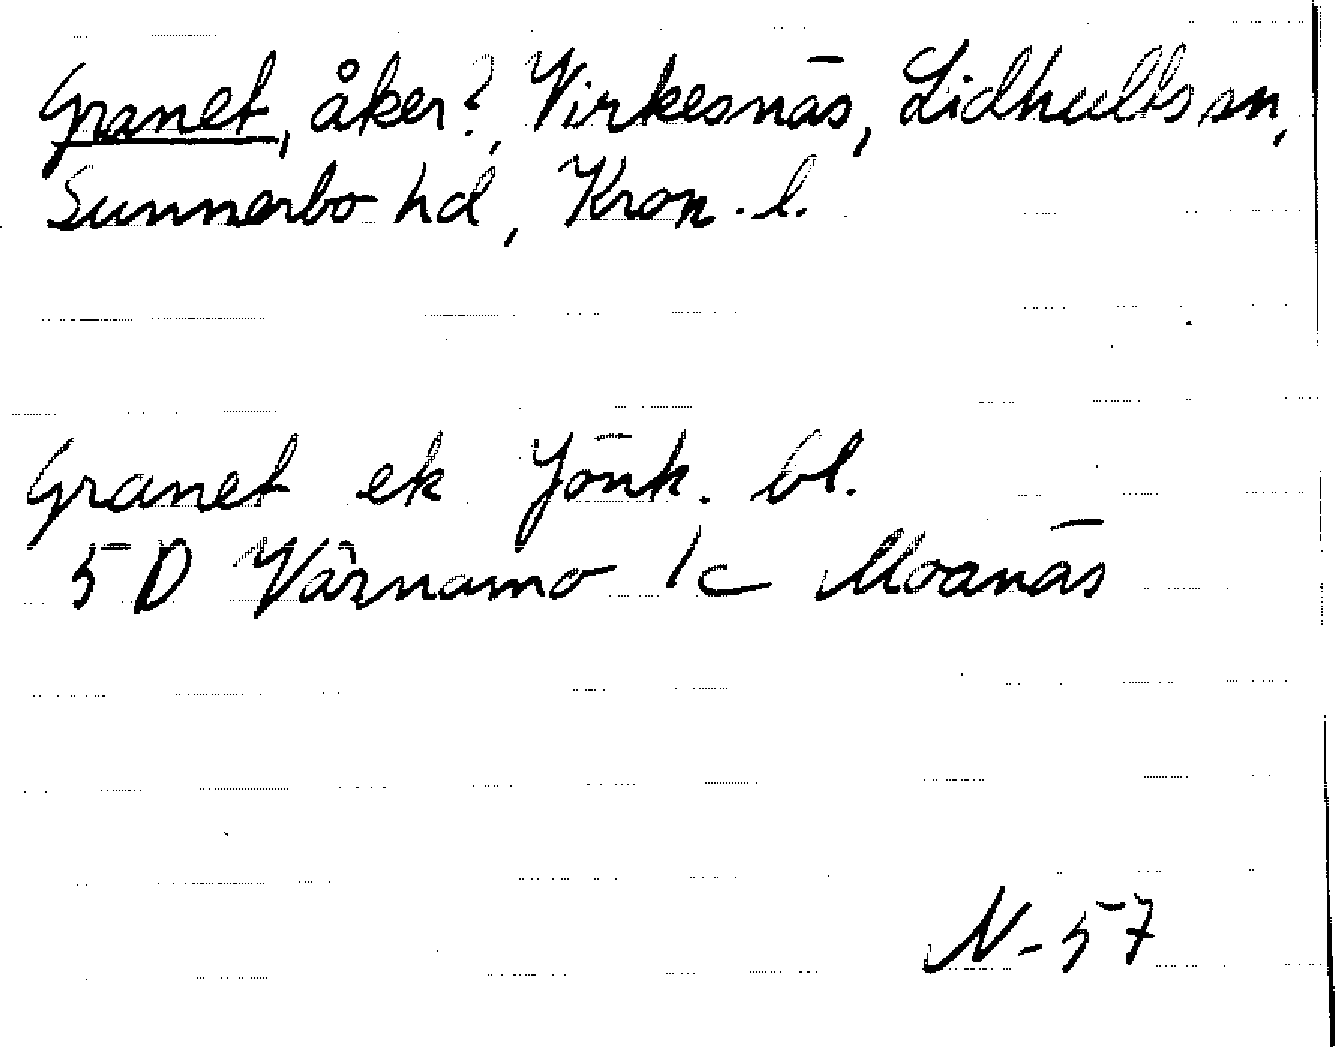 Granet, åker?, Virkesnäs, Lidhults sn,
Sunnerbo hd, Kron. l.
Granet ek Jönk. bl.
5D Värnamo 1c Moanäs
N-57